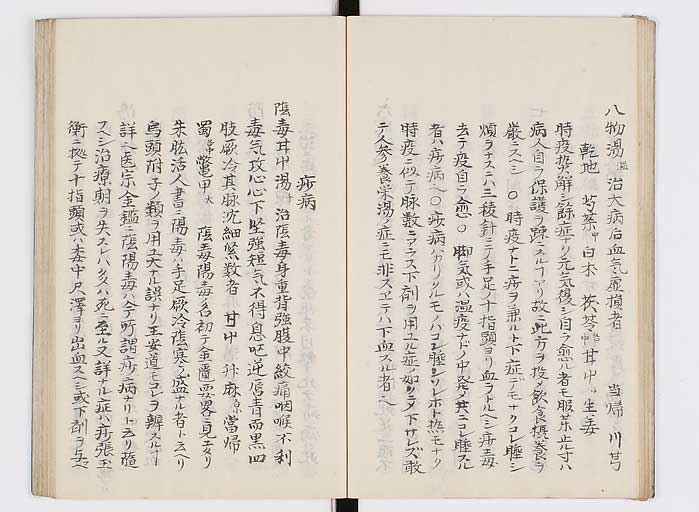 八物湯 治大病后血气虚損者 当帰 川芎
乾地 芍薬 白朮 茯苓 甘中 生姜
時疫熱解シ餘症ナク元气復シ自ラ愈ル者モ服薬止ル寸ハ
病人自ラ保護ヲ踈ニスルフアリ故ニ此方ヲ投メ飲食摂養ヲ
厳ニスベシ 〇 時疫ナドニ痧ヲ兼ルト下症デモナクコレ腫シ
煩ヲナスニハ三稜針ニテ手足ノ十指頭ヨリ血ヲトルヘシ痧毒
去テ疫自ラ愈 〇 脚気或ハ温疫ナドノ中発ノ共ニコレ腫スル
者ハ痧病 〇 痧病ハカリクルモノハコレ腫シソレホト热モナク
時疫ニ似テ脉数ニアラス下剤ヲ用ユル症ノ如クニメ下サレズ敢
テ人参養栄湯ノ症ニモ非ス ハ下血スル者
痧病
陰毒甘中湯 治陰毒身重背強腹中絞痛咽喉不利
毒气攻心心下堅強短气不得息呕逆唇青面黒四
肢厥冷其脉沈細緊数者 甘中 升麻 当帰
蜀 鼈甲 陰毒陽毒名初テ金匱要畧ニ見エタリ
朱肱活人書ニ陽毒ハ手足厥冷陰寒ノ盛ナル者ト云ヘリ
烏頭附子ノ類ヲ用ユ大ナル誤ナリ王安道モコレヲ辨スル
詳 医宗金鑑ニ陰陽毒ハ今所謂痧病ナリト云リ随
スシ治療期ヲ失スレハ多クハ死ニ至ル又詳ナル症ハ痧張玉
衡ニ拠テ十指頭或ハ委中尺澤ヨリ出血スヘシ或下剤ヲ与ヘ